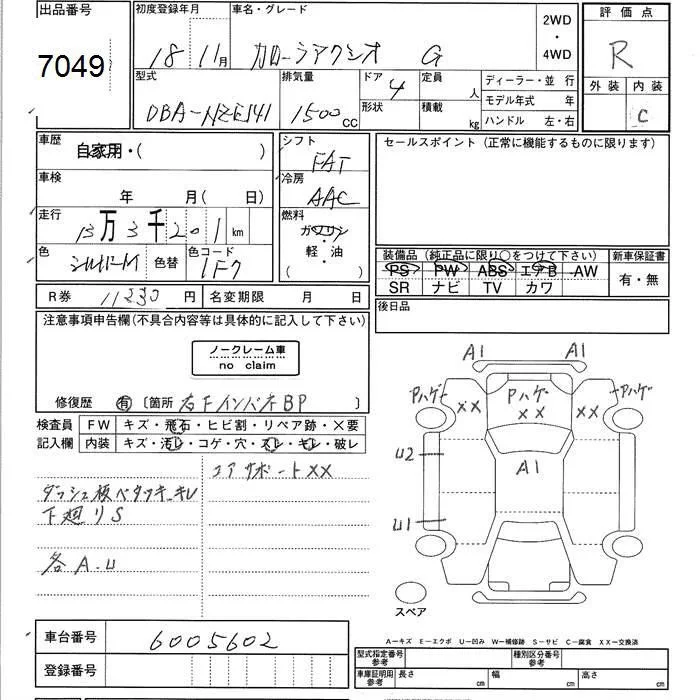 出品番号
7049
初度登録年月
18 11月
車名・グレード
カローラアクシオ G
2WD
・
4WD
評価点
R
外装 内装
C
型式
DBA-NZE141
排気量
1500 cc
ドア
4
形状
定員
人
積載
kg
ディーラー・並 行
モデル年式 年
ハンドル 左・右
車歴
自家用・( )
車検
年 月( 日)
走行
13万3千201km
色
シルバーM
色替
色コード
1F7
シフト
FAT
冷房
AAC
燃料
ガソリン
軽・油
( )
セールスポイント(正常に機能するものに限ります)
装備品(純正品に限り○をつけて下さい)
PS PW ABS エアB AW
SR ナビ TV カワ
新車保証書
有・無
後日品
R券 11230円
名変期限 月 日
注意事項申告欄(不具合内容等は具体的に記入して下さい)
ノークレーム車
no claim
修復歴 有 〔箇所 右FインパネBP 〕
検査員
記入欄
FW キズ・飛石・ヒビ割・リペア跡・×要
内装 キズ・汚レ・コゲ・穴・スレ・キレ・破レ
コアサポートXX
ダッシュ板ベタツキ、キレ
下廻りS
各A.U
A1 A1
Pハゲ XX
Pハゲ XX
XX Pハゲ
A1
U2
U1
スペア
A-キズ E-エクボ U-凹み W-補修跡 S-サビ C-腐食 XX-交換済
車台番号 6005602
登録番号
型式指定番号
参考
種別区分番号
参考
車庫証明用
参考
長さ cm 幅 cm 高さ cm